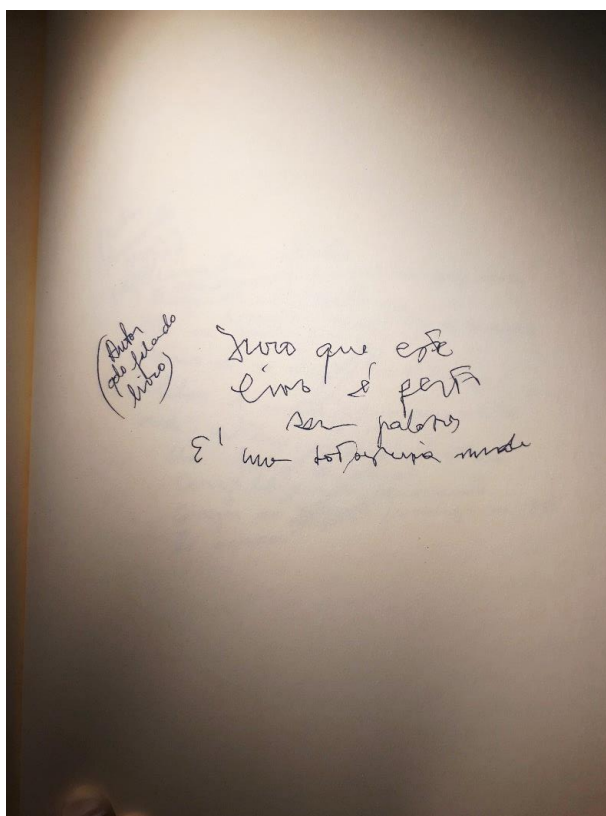 (Autor
falando
livro)
Juro que este
livro é feito
sem palavras
É uma fotografia muda